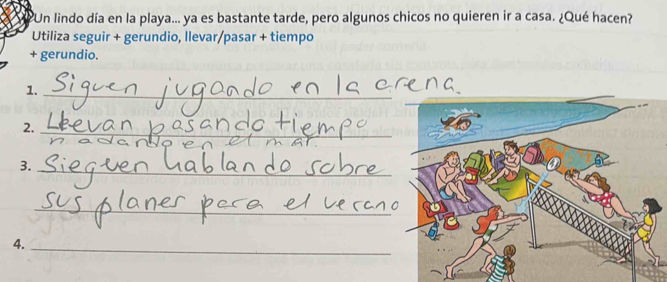 Un lindo día en la playa... ya es bastante tarde, pero algunos chicos no quieren ir a casa. ¿Qué hacen?
Utiliza seguir + gerundio, llevar/pasar + tiempo
+ gerundio.
1. Siguen jugando en la arena.
2. Llevan pasando tiempo
nadando en el mar.
3. Sieguen hablando sobre
sus planes para el verano
4.